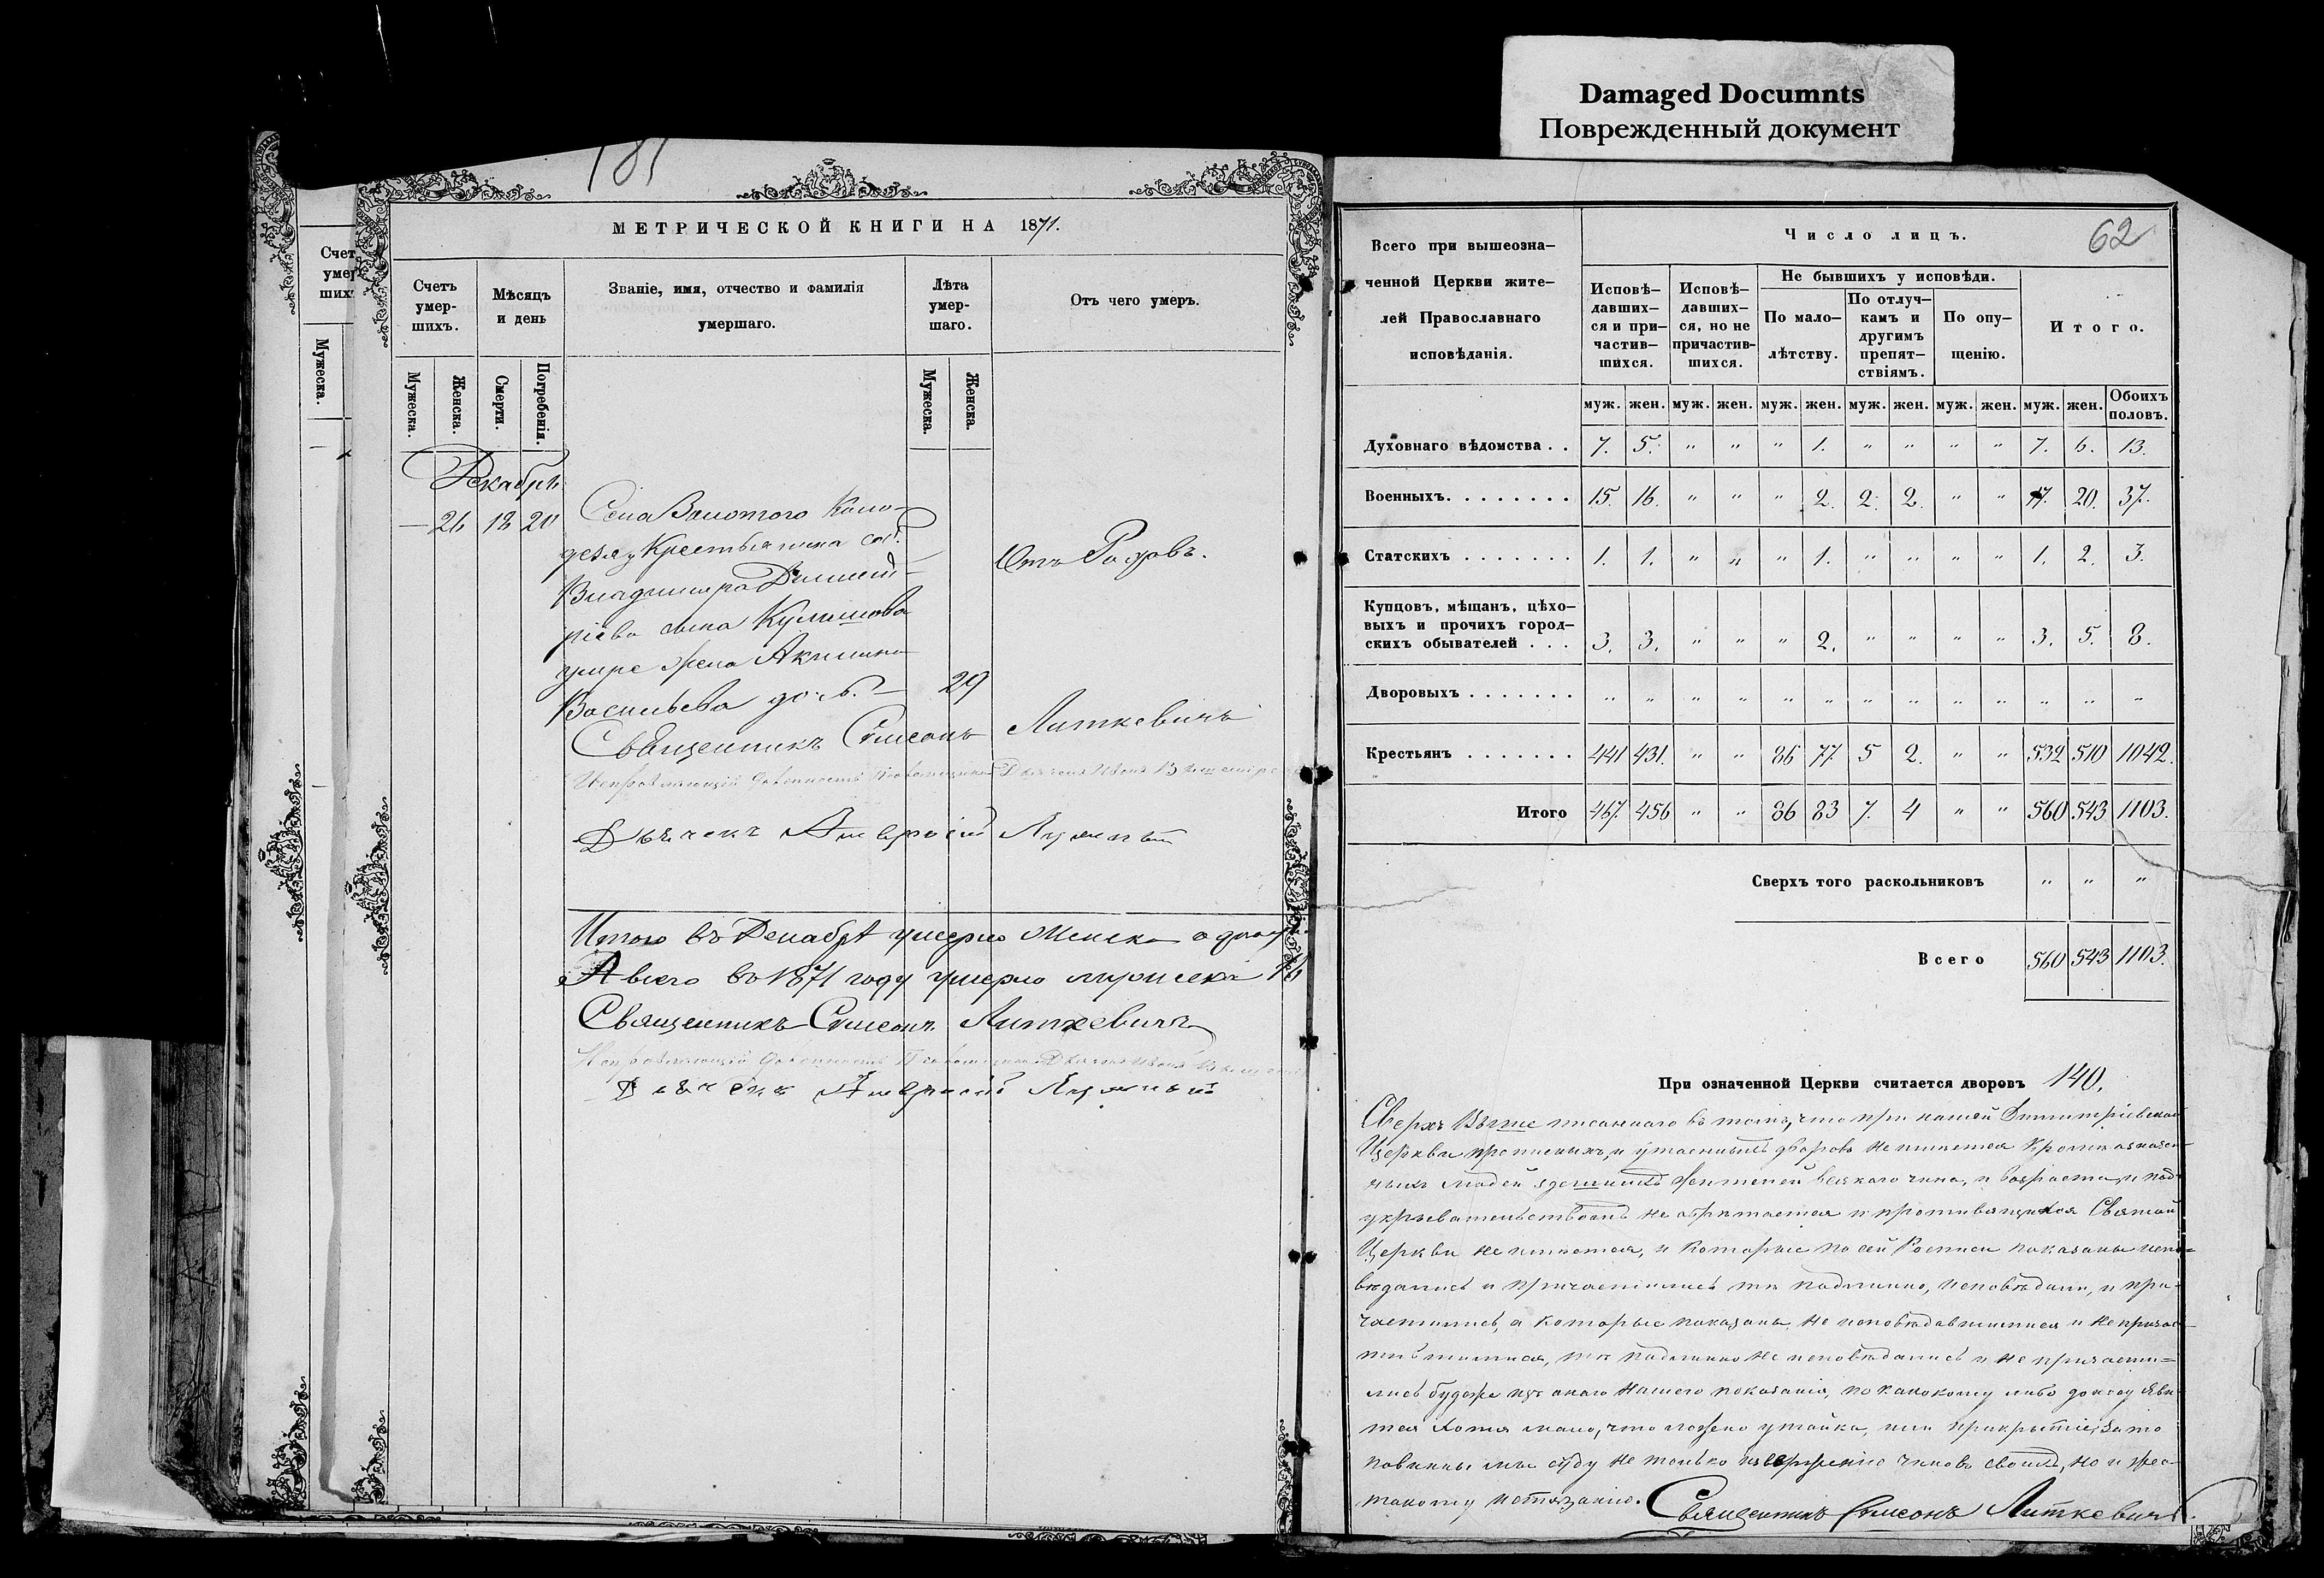 Damaged Documnts
Поврежденный документ
181
МЕТРИЧЕСКОЙ КНИГИ НА 1871.
Счетъ умер-шихъ.
Мѣсяцъ и день
Званіе, имя, отчество и фамилія умершаго.
Лѣта умер-шаго.
Отъ чего умеръ.
Мужеска.
Женска.
Смерти.
Погребенія.
Мужеска.
Женска.
Декабрь
— 26 18 20
Села Золотого Коло-
дезя Крестьянина соб.
Владимира Димит-
ріева сына Кулишова
умре жена Акилина
Васильева доч. — 29
Отъ Родовъ.
Священникъ Симеонъ Литкевичъ
Исправляющій должность Псаломщика Діаконъ Иванъ
Дьячекъ Амвросій
Итого въ Декабрѣ умерло Женска
А всего въ 1871 году умерло мужеска
Священникъ Симеонъ Литкевичъ
Исправляющій должность Псаломщика Діаконъ Иванъ
Дьячекъ Амвросій
Счет
умер
ших
Мужеска.
62
Всего при вышеозна-
ченной Церкви жите-
лей Православнаго
исповѣданія.
Число лицъ.
Исповѣ-давших-ся и при-частив-шихся.
Исповѣ-давших-ся, но не причастив-шихся.
Не бывшихъ у исповѣди.
По мало-лѣтству.
По отлуч-камъ и другимъ препят-ствіямъ.
По опу-щенію.
Итого.
муж. жен. муж. жен. муж. жен. муж. жен. муж. жен. муж. жен. Обоихъ половъ.
Духовнаго вѣдомства . . 7. 5. " " " 1. " " " " 7. 6. 13.
Военныхъ. . . . . . . . 15. 16. " " " 2. 2. 2. " " 17. 20. 37.
Статскихъ . . . . . . . 1. 1. " " " 1. " " " " 1. 2. 3.
Купцовъ, мѣщанъ, цѣхо-
выхъ и прочихъ город-
скихъ обывателей . . . 3. 3. " " " 2. " " " " 3. 5. 8.
Дворовыхъ . . . . . . . " " " " " " " " " " " " "
Крестьянъ . . . . . . . 441 431. " " 86 77. 5 2. " " 532 510 1042.
Итого 467. 456 " " 86 83 7. 4 " " 560 543 1103.
Сверхъ того раскольниковъ " " "
Всего 560 543 1103.
При означенной Церкви считается дворовъ 140.
Сверхъ Выше писаннаго въ томъ, что при нашей Димитріевской
Церкви прописныхъ, и утаенныхъ дворовъ не имѣется Кромѣ означен-
ныхъ людей здешнихъ жителей всякаго чина, и возраста, и под
укрывательствомъ не обрѣтается и противящихся Святой
Церкви не имѣется, и Которые по сей Росписи показаны испо-
вѣдались и причастились тѣ подлинно, исповѣдали, и при-
частились, а Которые показаны не исповѣдавшимися и не причас-
тившимися, тѣ подлинно не исповѣдались и не причасти-
лись буде же изъ онаго нашего показанія, по какому либо доносу яви-
тся Хотя мало, что ложно утайка, или прикрытіе; за то
повинны мы суду не только изверженіе чиновъ своихъ, но и жес-
токому истязанію. Священникъ Симеонъ Литкевичъ